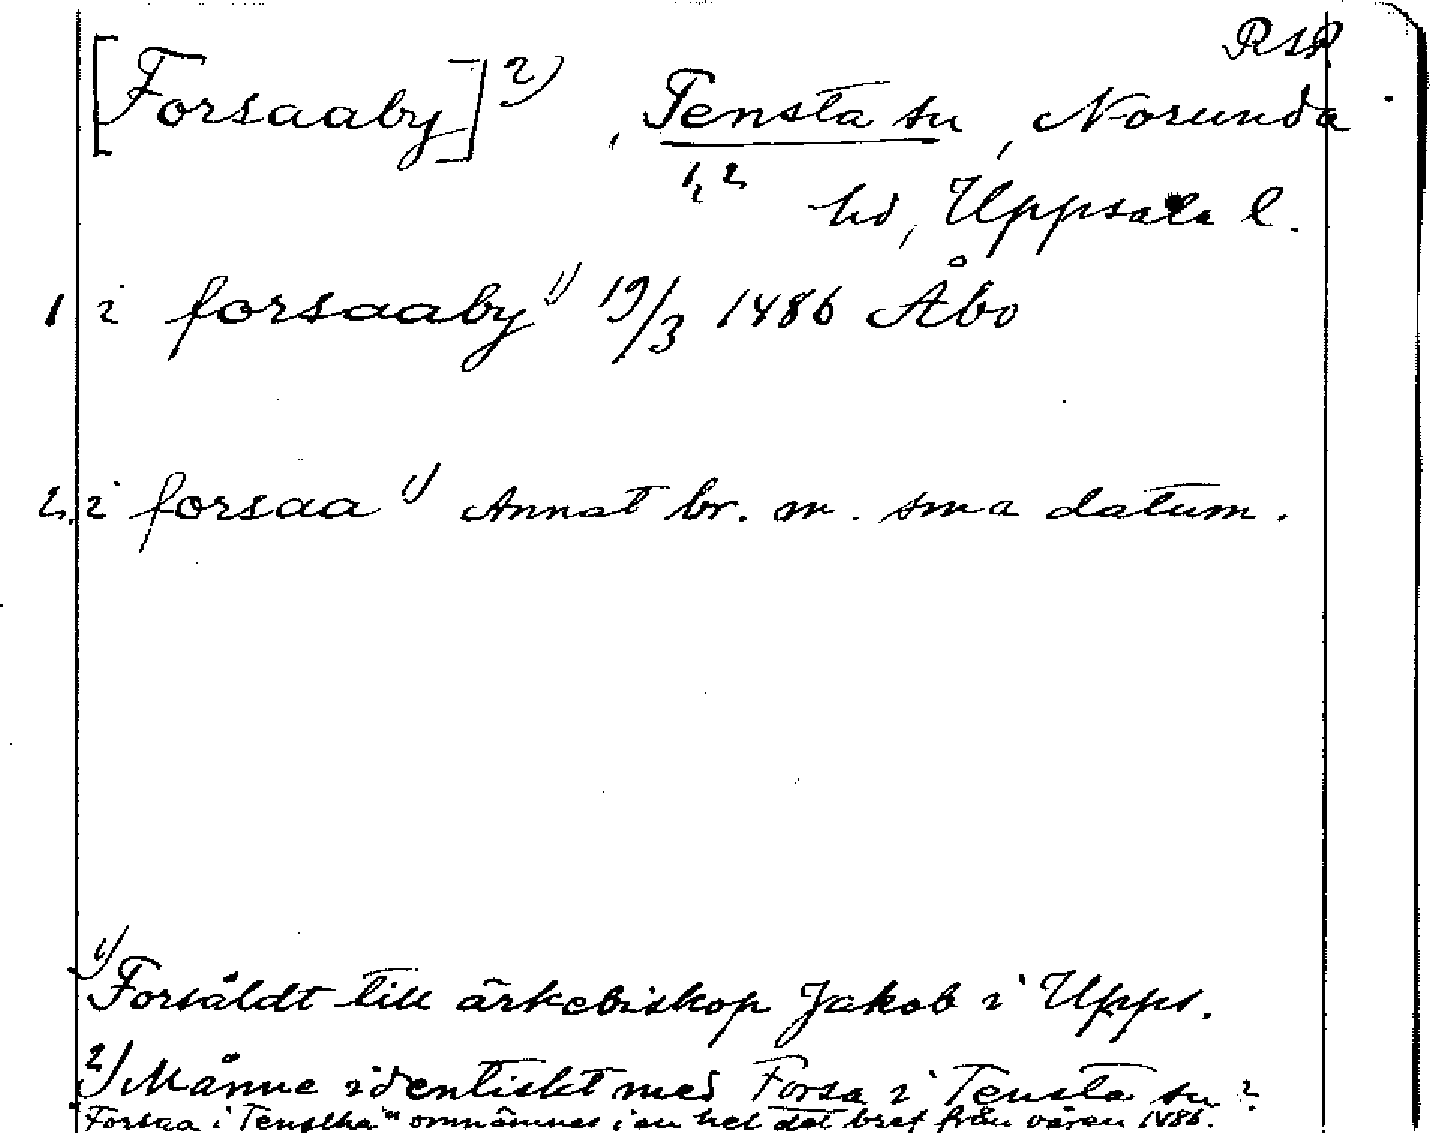 RSP
[Forsaaby]2) , Tensta sn, Norunda
1,2 hd, Uppsala l.
1 i forsaaby 1) 19/3 1486 Åbo
2, i forsaa 1) Annat br. m. sma datum.
1) Forsåldt till ärkebiskop Jakob i Upps.
2) Månne identiskt med Forsa i Tensta sn?
Forsaa i Tenstha" omnämnes i en hel del bref från våren 1486.